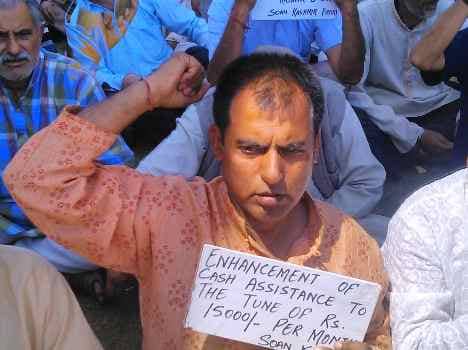 SOAN KASHMIR FRONT
ENHANCEMENT OF
CASH ASSISTANCE TO
THE TUNE OF Rs.
15000/- PER MONTH
SOAN